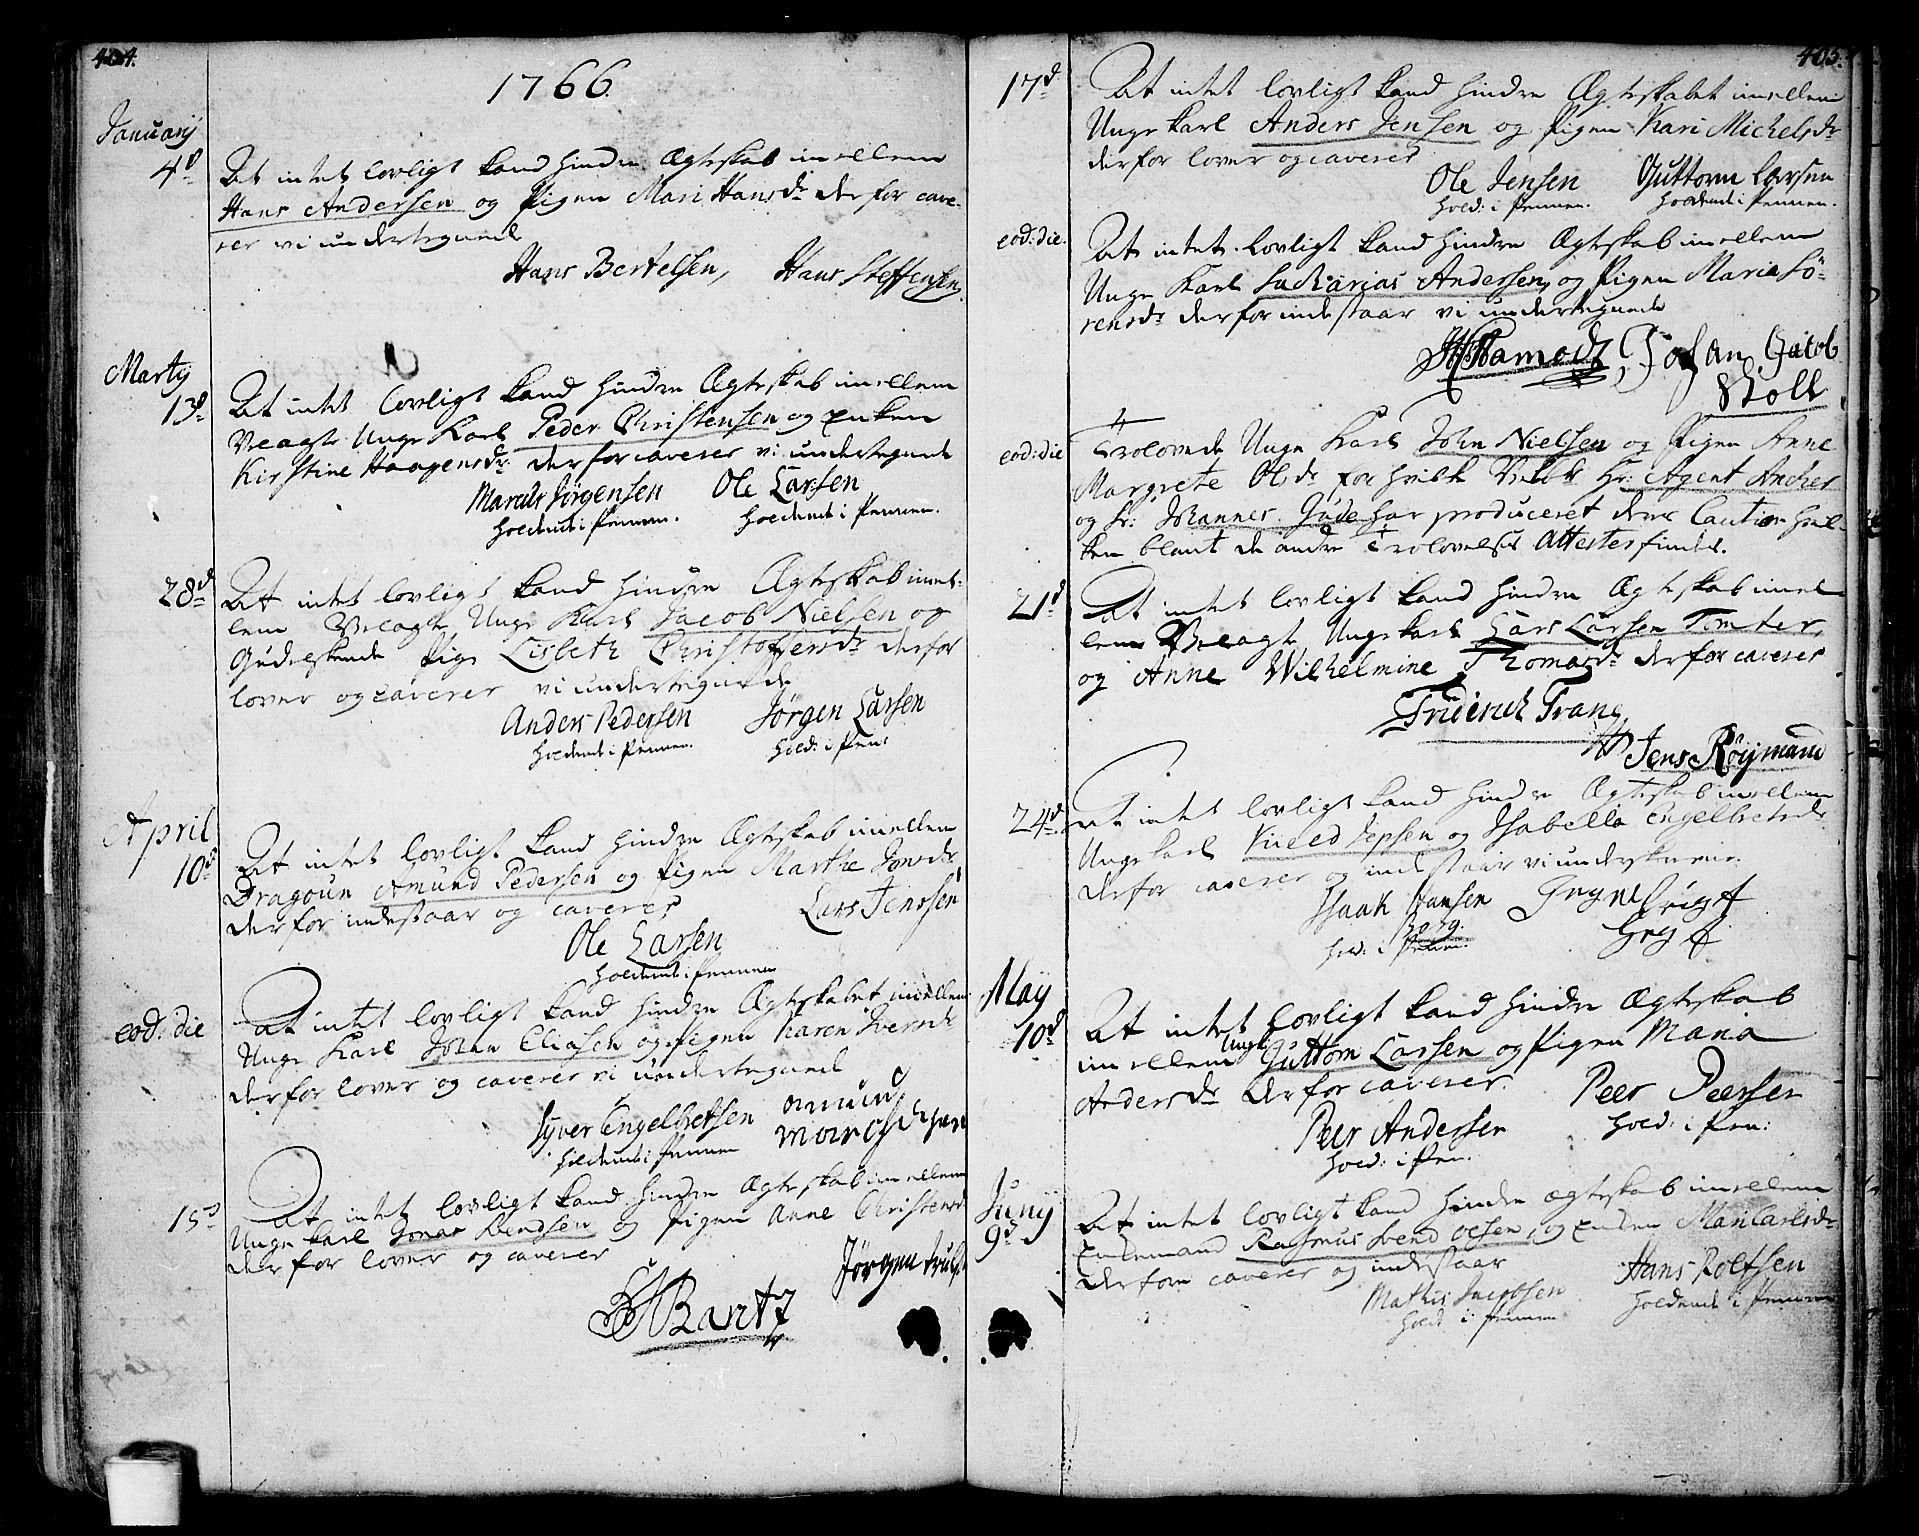 404.
1766.
Januarij
4d
At intet lovligt kand hindre Ægteskab imellem
Hans Andersen og Pigen Mari Hansdr derfor cave-
rer vi undertegnede
Hans Bertelsen, Hans Steffensen
Martij
13d
At intet lovligt kand hindre Ægteskab imellem
Velagte Unge Karl Peder Christensen og Enken
Kirstine Haagensdr derfor caverer vi undertegnede
Marcus Jørgensen Ole Larsen
holdende i Pennen. holdende i Pennen.
28d
At intet lovligt kand hindre Ægteskab imel-
lem Velagte Unge Karl Jacob Nielsen og
Gudelskende Pige Lisbeth Christophersdr derfor
lover og caverer vi undertegnede
Anders Pedersen Jørgen Larsen
holdende i Pennen. hold: i Pen:
April
10d
At intet lovligt kand hindre Ægteskab imellem
Dragoun Amund Pedersen og Pigen Marthe Jonsdr
derfor indestaar og caverer Lars Jenssen
Ole Larsen
holdende i Pennen
eod: die
At intet lovligt kand hindre Ægteskabet imellem
Unge Karl Johan Eliasen og Pigen Karen Iversdr
derfor lover og caverer vi undertegnede
Syver Engelbretsen Amund
holdende i Pennen
15d
At intet lovligt kand hindre Ægteskab imellem
Unge Karl Jonas Bendsen og Pigen Anne Christensd
derfor lover og caverer
Jørgen Truls
Bartz
405.
17d
At intet lovligt kand hindre Ægteskabet imellem
Unge Karl Anders Jensen og Pigen Kari Michelsdr
derfor lover og caverer
Ole Jensen Guttorm Larsen
hold: i Pennen. holdende i Pennen.
eod: die.
At intet lovligt kand hindre Ægteskab imellem
Unge Karl Sacharias Andersen, og Pigen Maria Sö-
rensdr derfor indestaar vi undertegnede
Johan Jacob
Holl
eod: die
Trolovede Unge Karl John Nielsen og Pigen Anne
Margrete Olsdr, for hvilke Velb. Hr: Agent Ancher
og Sr: Johannes Gude har produceret deres Caution hvil-
ken blant de andre Trolovelses Attester findes.
21d
At intet lovligt kand hindre Ægteskab imel-
lem Velagte Unge Karl Lars Larsen Tomter,
og Anne Wilhelmine Thomasdr derfor caverer
Friderich Trane
Jens Röymand
24d
At intet lovligt kand hindre Ægteskab imellem
Unge Karl Knud Jepsen og Isabella Engelbretsdr
derfor caverer og indestaar vi underskrevne.
Isaak Hansen
Borg.
hold: i Pennen.
Maij
10d
At intet lovligt kand hindre Ægteskab
imellem Unge K: Guttom Larsen og Pigen Maria
Andersdr derfor caverer.
Peer Andersen Peer Peersen
hold: i Pen. hold: i Pen:
Junij
9d
At intet lovligt kand hindre Ægteskab imellem
Enkemand Rasmus Svend Olsen, og Enken Mari Carlsdr
derfore caverer og indestaar
Mathis Jacobsen Hans Rolfsen
hold i Pennen holdende i Pennen